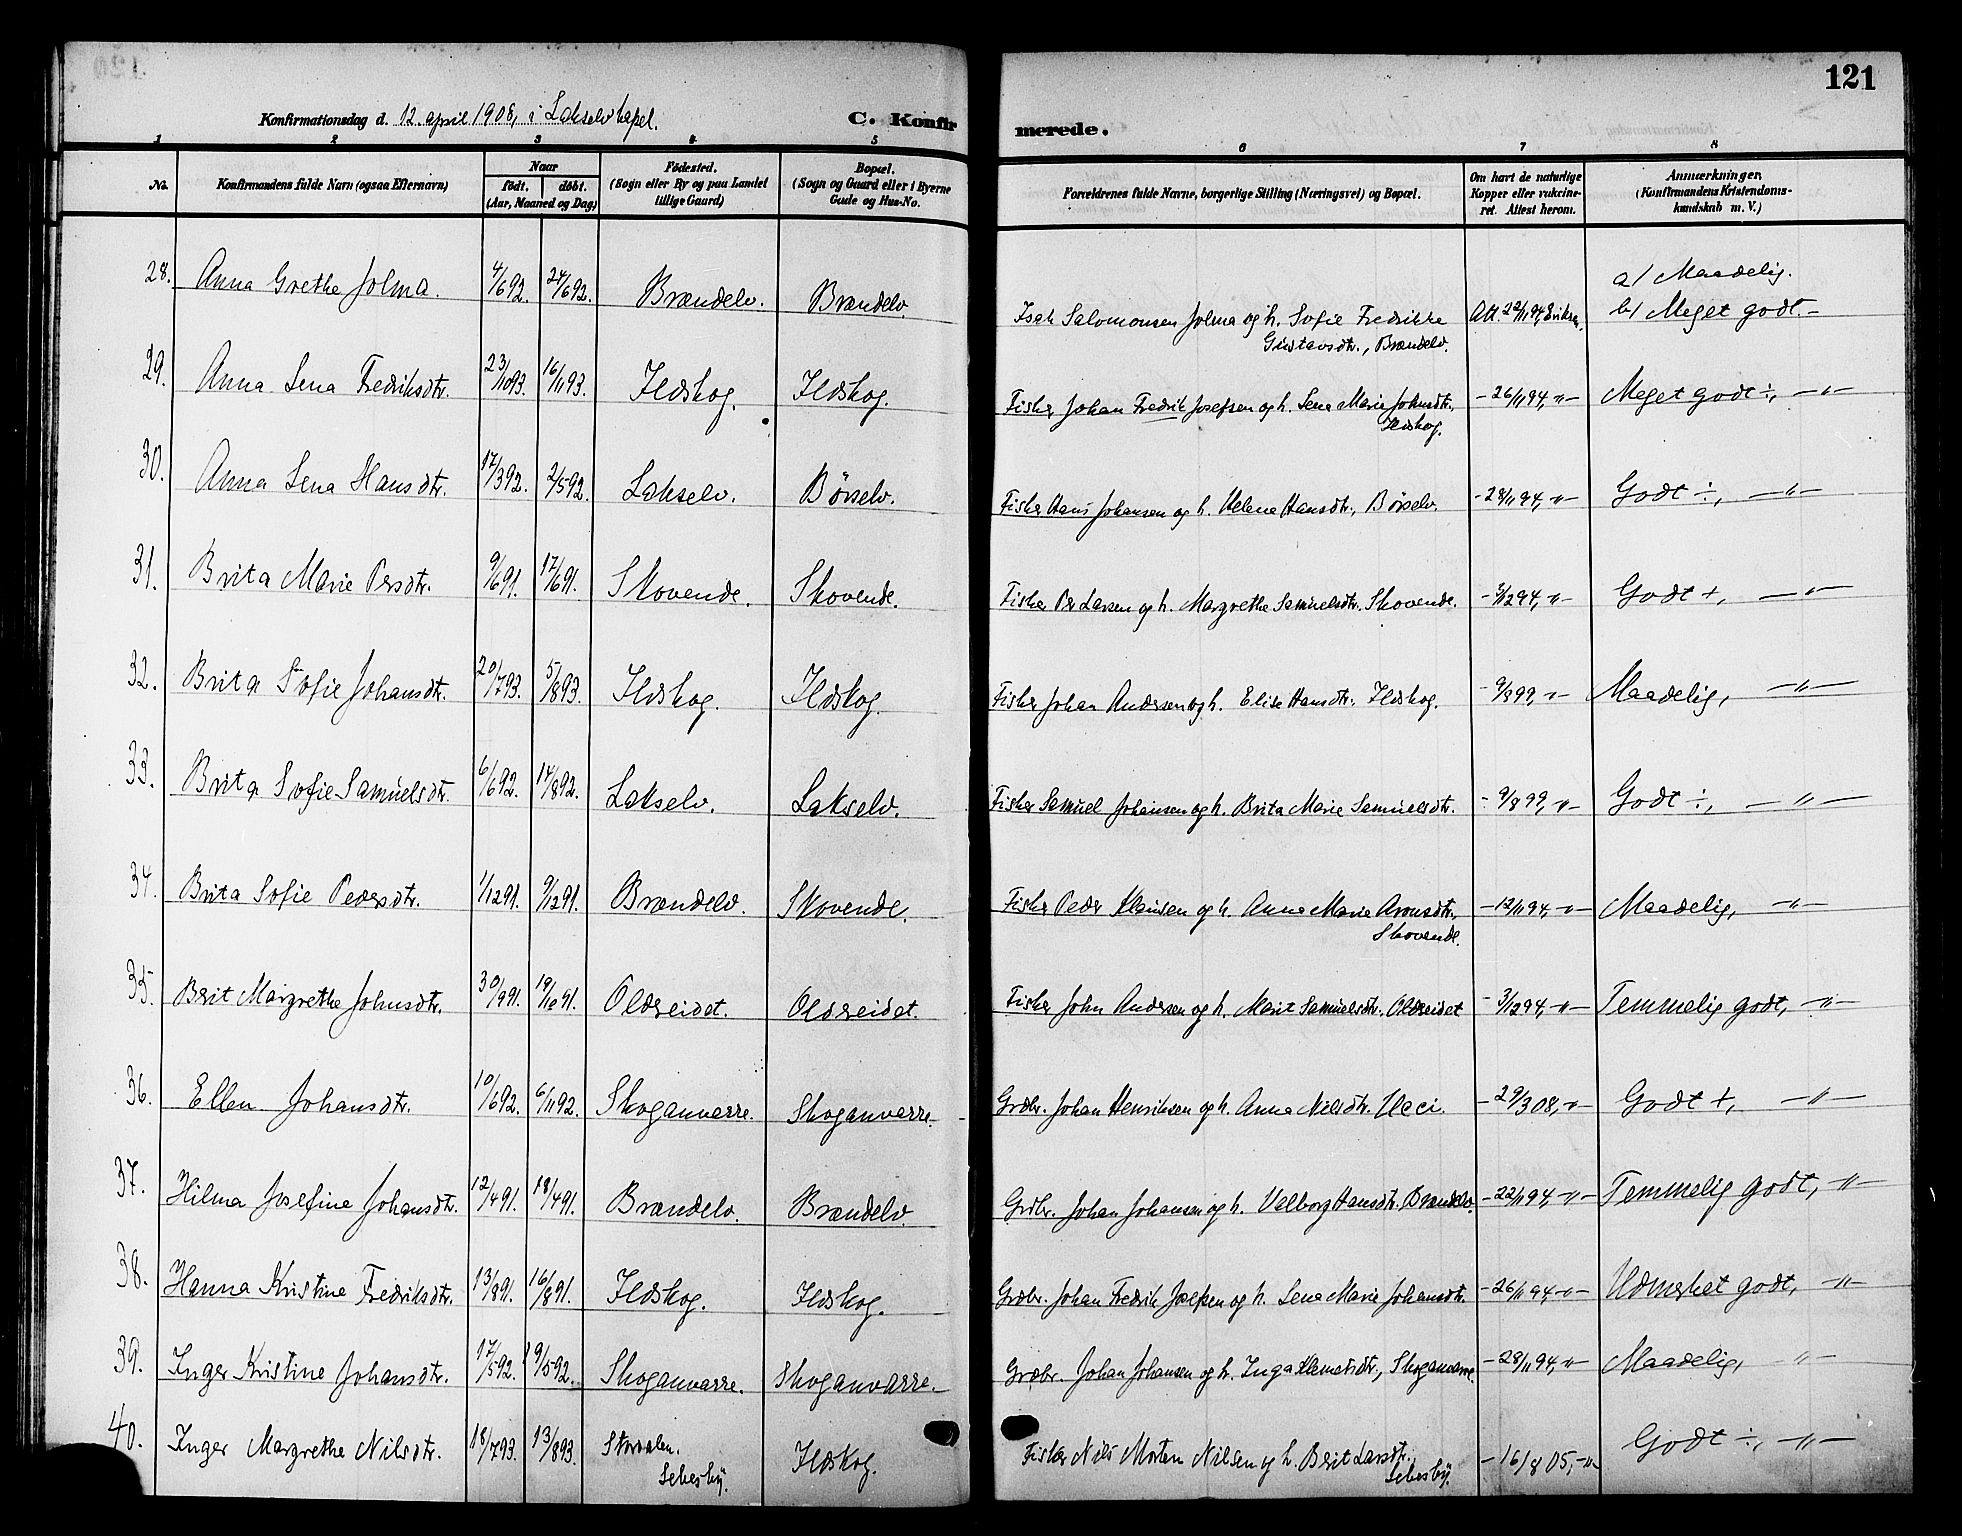 121
Konfirmationsdag d. 12. april 1908, i Lakselv kapel.
C. Konfirmerede.
1 2 3 4 5 6 7 8
No.
Konfirmandens fulde Navn (ogsaa Efternavn)
Naar
født. døbt.
(Aar, Maaned og Dag)
Fødested.
(Sogn eller By og paa Landet
tillige Gaard)
Bopæl.
(Sogn og Gaard eller i Byerne
Gade og Hus-No.
Forældrenes fulde Navne, borgerlige Stilling (Næringsvei) og Bopæl.
Om havt de naturlige
Kopper eller vakcine-
ret. Attest herom.
Anmærkninger,
(Konfirmandens Kristendoms-
kundskab m. V.)
28. Anna Grethe Jolma. 4/6 92. 24/6 92. Brændelv. Brændelv. Isak Salomonsen Jolma og h. Sofie Fredrikke Att. 22/11 94, Eriksen. a/ Maadelig.
Gustavsdtr., Brændelv. b/ Meget godt. –
29. Anna Lena Fredriksdtr. 23/10 93. 16/11 93. Ildskog. Ildskog. Fisker Johan Fredrik Josefsen og h. Lena Marie Johnsdtr. – 26/11 94, –"– Meget godt ÷, –"–
Ildskog.
30. Anna Lena Hansdtr. 17/3 92. 2/5 92. Lakselv. Børselv. Fisker Hans Johansen og h. Helene Hansdtr., Børselv. – 28/11 94, –"– Godt ÷, –"–
31. Brita Marie Persdtr. 9/6 91. 17/6 91. Skovende. Skovende. Fisker Per Larsen og h. Margrethe Samuelsdtr. Skovende. – 3/12 94, –"– Godt +, –"–
32. Brita Sofie Johansdtr. 20/7 93. 5/8 93. Ildskog. Ildskog. Fisker Johan Andersen og h. Elise Hansdtr. Ildskog. – 9/8 99, –"– Maadelig, –"–
33. Brita Sofie Samuelsdtr. 6/6 92. 14/8 92. Lakselv. Lakselv. Fisker Samuel Johansen og h. Brita Marie Samuelsdtr. – 9/8 99, –"– Godt ÷, –"–
34. Brita Sofie Pedersdtr. 1/12 91. 9/12 91. Brændelv. Skovende. Fisker Peder Klausen og h. Anna Marie Aronsdtr., – 12/11 94, –"– Maadelig, –"–
Skovende.
35. Brit Margrethe Johnsdtr. 30/9 91. 19/10 91. Oldereidet. Oldereidet. Fisker John Andersen og h. Marit Samuelsdtr. Oldereidet – 3/12 94, –"– Temmelig godt, –"–
36. Ellen Johansdtr. 10/6 92. 6/11 92. Skoganvarre. Skoganvarre. Grdbr. Johan Henriksen og h. Anna Nilsdtr. – 29/3 08, –"– Godt +, –"–
37. Hilma Josefine Johansdtr. 12/4 91. 18/4 91. Brændelv. Brændelv Grdbr. Johan Johansen og h. Valborg Hansdtr. Brændelv. – 22/11 94, –"– Temmelig godt, –"–
38. Hanna Kristine Fredriksdtr. 13/8 91. 16/8 91. Ildskog. Ildskog. Grdbr. Johan Fredrik Josefsen og h. Lena Marie Johansdtr. – 26/11 94 –"– Udmerket godt, –"–
39. Inger Kristine Johansdtr. 17/5 92. 19/5 92. Skoganvarre. Skoganvarre. Grdbr. Johan Johansen og h. Inga Klemetsdtr., Skoganvarre. – 28/11 94, –"– Maadelig, –"–
40. Inger Margrethe Nilsdtr. 18/7 93. 13/8 93. Ildskog. Fisker Nils Morten Nilsen og h. Brit Larsdtr. – 16/8 05, –"– Godt ÷, –"–
Lebesby. Lebesby.